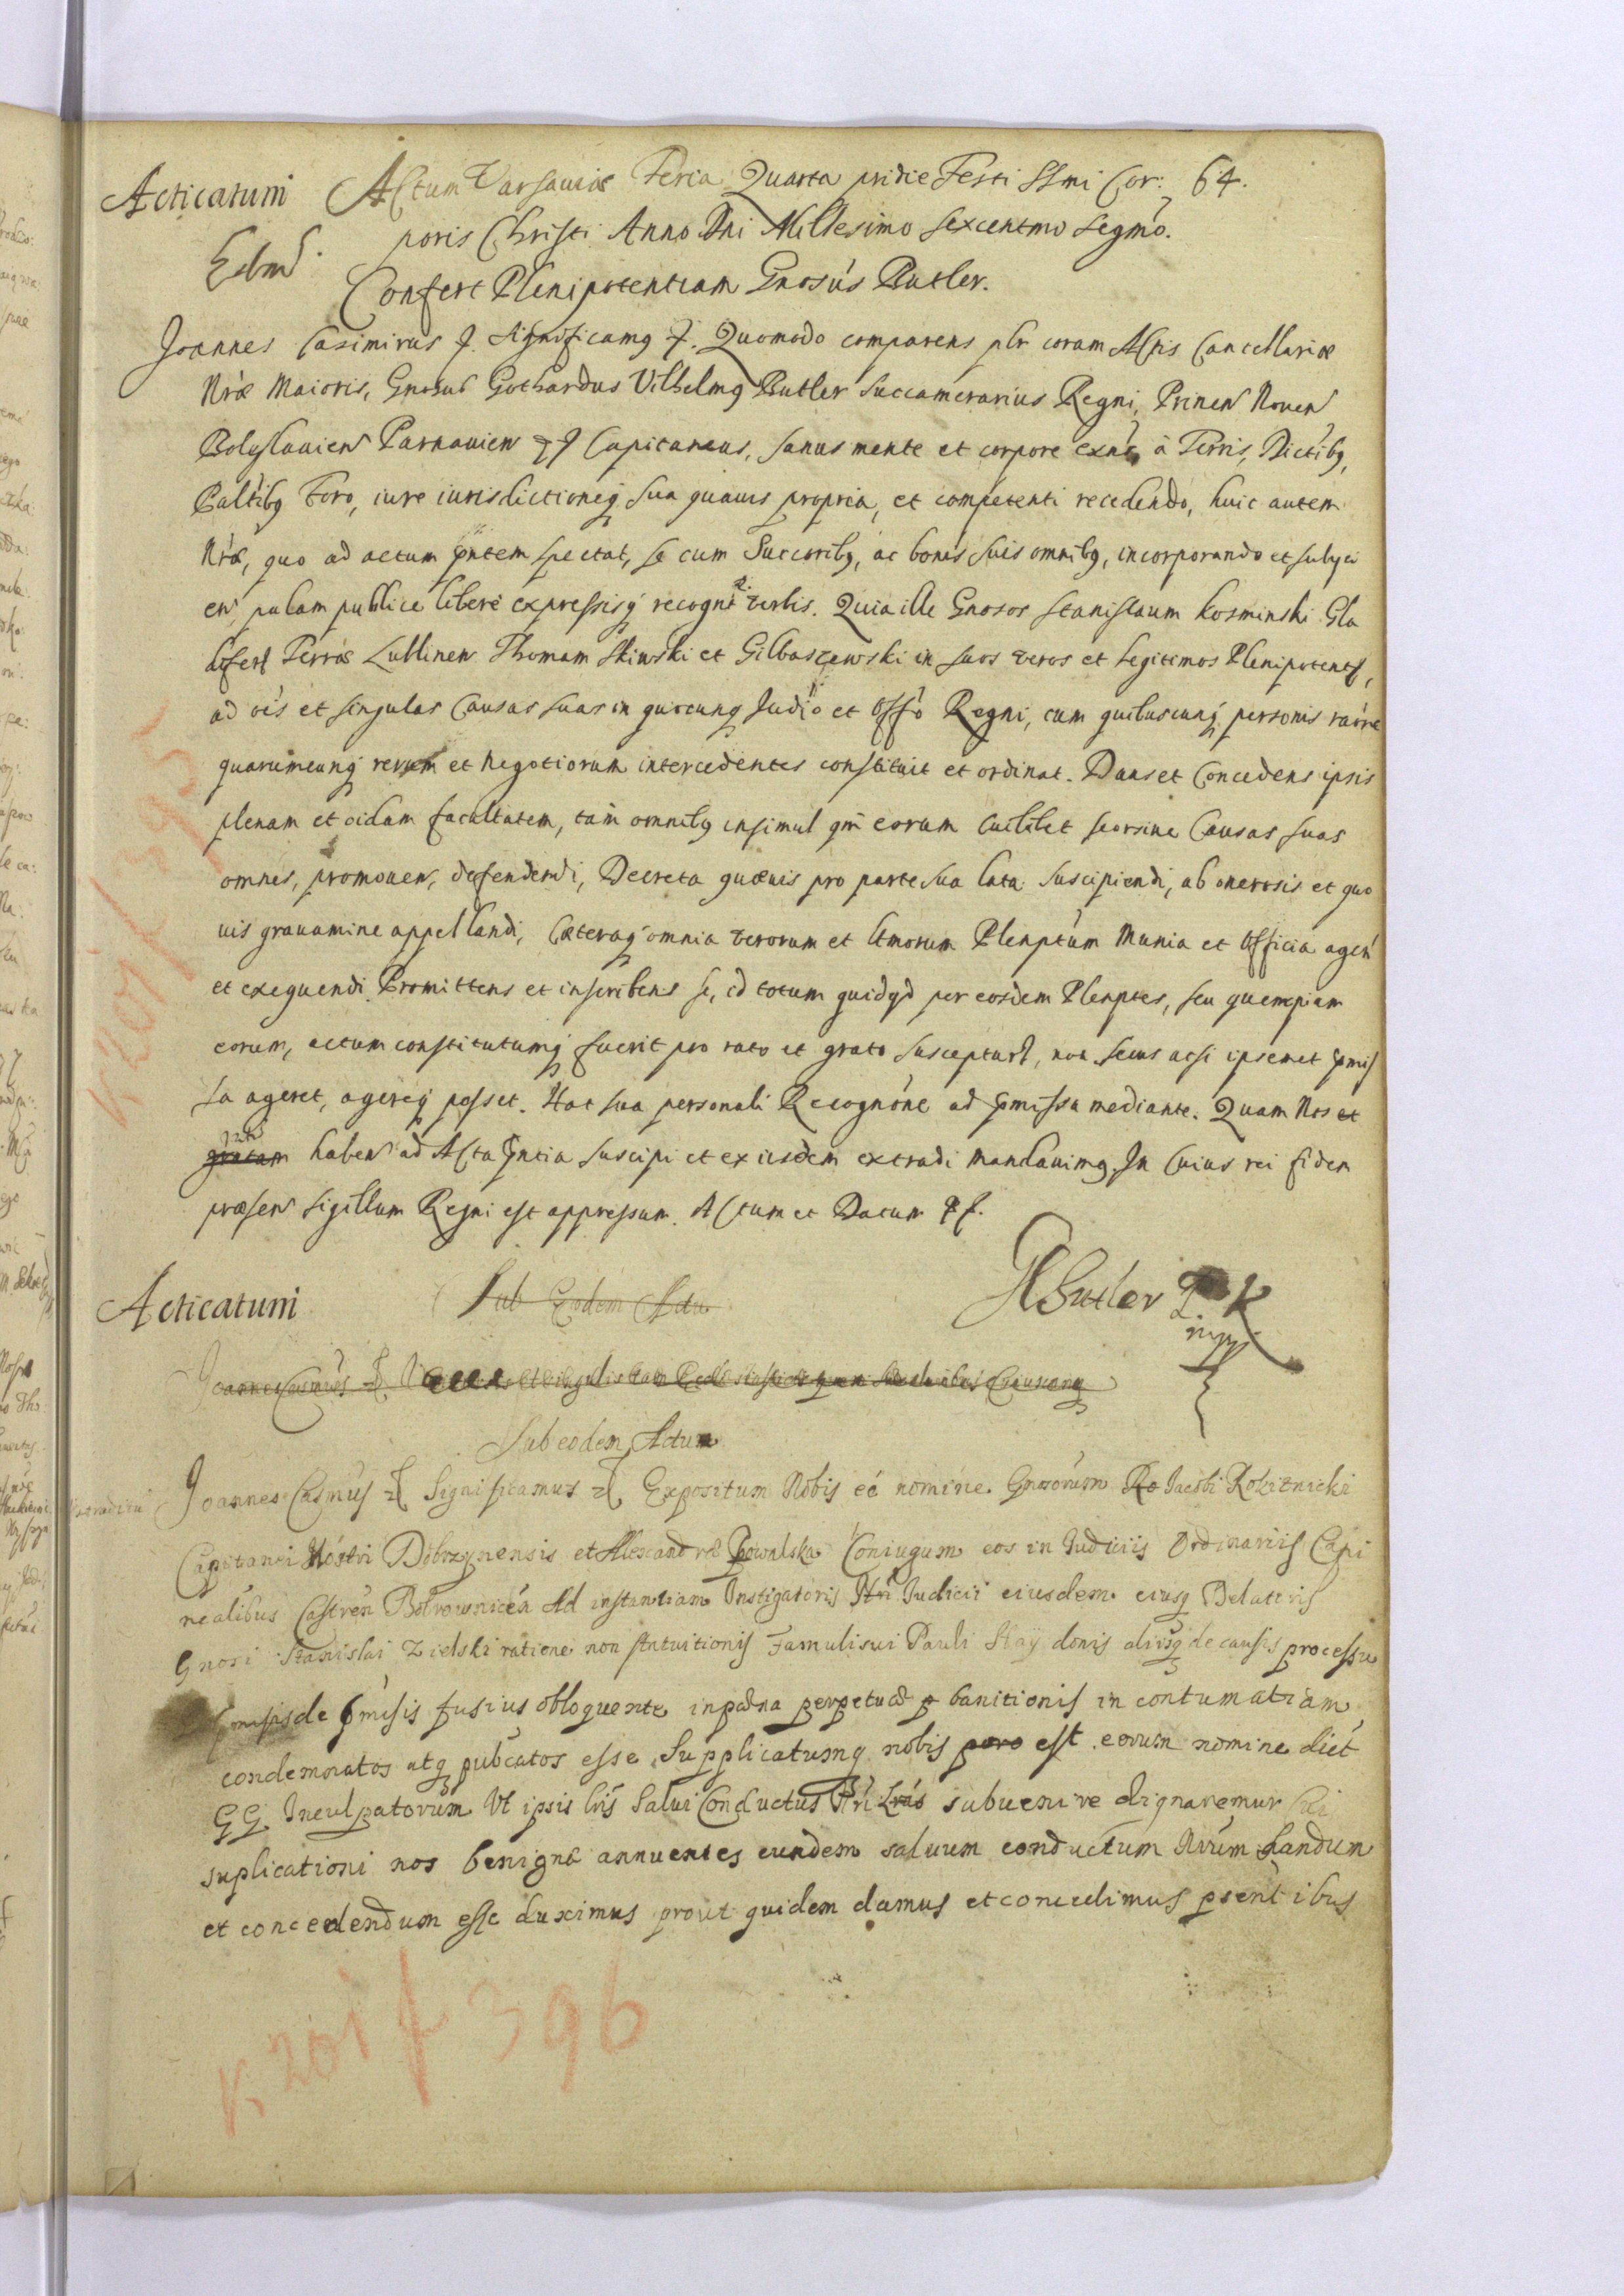 Acticatum Actum Varsauiæ Feria Quarta pridie Festi SSmi Cor: 64.
poris Christi Anno Dni Millesimo sexcentmo segmo.
Confert Plenipotentiam Gnosus Butler.
Joannes Casimirus Significamq Quomodo comparens plr coram Actis Cancellariæ
Nræ Maioris, Gnosus Gothardus Vilhelmq Butler Succamerarius Regni, Prinen Noven
Bolyslauien Parnauien Capitaneus, sanus mente et corpore exns à Terris, Dictibq,
Paltibq Foro, iure iurisdictioneq sua quauis propria, et competenti recedendo, huic autem
Nræ, quo ad actum pntem spectat, se cum Succoribq, ac bonis suis omnibq, incorporando et subyci
en, palam publice libere expressisq recognt verbis. Quia ille Gnosos Stanislaum Kosminski Gla
diferl Terræ Lublinen Thomam Skiwski et Gilbaszewski in suos veros et legitimos Plenipotent,
ad oes et singulas Causas suas in quocunq Judio et Offo Regni, cum quibuscunq personis raone
quarumcunq rerum et negotiorum intercedentes constituit et ordinat. Dans et Concedens ipsis
plenam et oidam facultatem, tam omnibq insimul qm eorum cuilibet seorsine Causas suas
omnes, promouen, defendendi, Decreta quæuis pro parte sua lata suscipiendi, ab onerosis et quo
uis grauamine appellandi, Cæteraq omnia verorum et ltmorum Plenptum Munia et Officia agen
et exequendi. Promittens et inscribens se, id totum quidqd per eosdem Plenptes, seu quempiam
eorum, actum constitutumq fuerit pro rato et grato suscepturs, non secus acsi ipsemet pmis
sa ageret, agereq posset. Hac sua personali Recognone ad pmissa mediante. Quam Nos et
gratam haben ad Acta pntia suscipi et ex iisdem extradi mandauimq. In Cuius rei fidem
præsen sigillum Regni est appressum. Actum et Datum
Acticatum Sub Eodem Actu GButler
Joannes Casimirus
Sub eodem Actu
Joannes Casmus Significamus Expositum Nobis eé nomine Gnosorum Ro Jacobi Rokitnicki
Capitanei Nostri Dobrzynensis et Alexandræ Coniugum eos in Judiciis Ordinariis Capi
nealibus Castren Bobrownicen Ad instantiam Instigatoris Nri Judicii eiusdem eiusq Delatoris
Gnosi Stanislai Zielski ratione non stntuitionis Famuli sui Pauli aliisq de causis processu
pmissis de pmisis fusius obloquente in pæna perpetuæ banitionis in contumatiam
condemnatos atq pubcatos esse. Supplicatumq nobis poro est eorum nomine dict
GG Inculpatorum Vt ipsis lris Salui Conductus Nri Lras subuenire dignaremur Cui
suplicationi nos benigne annuentes eundem saluum conductum Nrum dandum
et concedendum esse duximus prout quidem damus et concedimus psentibus
K 201 f 395
K 201 f 396